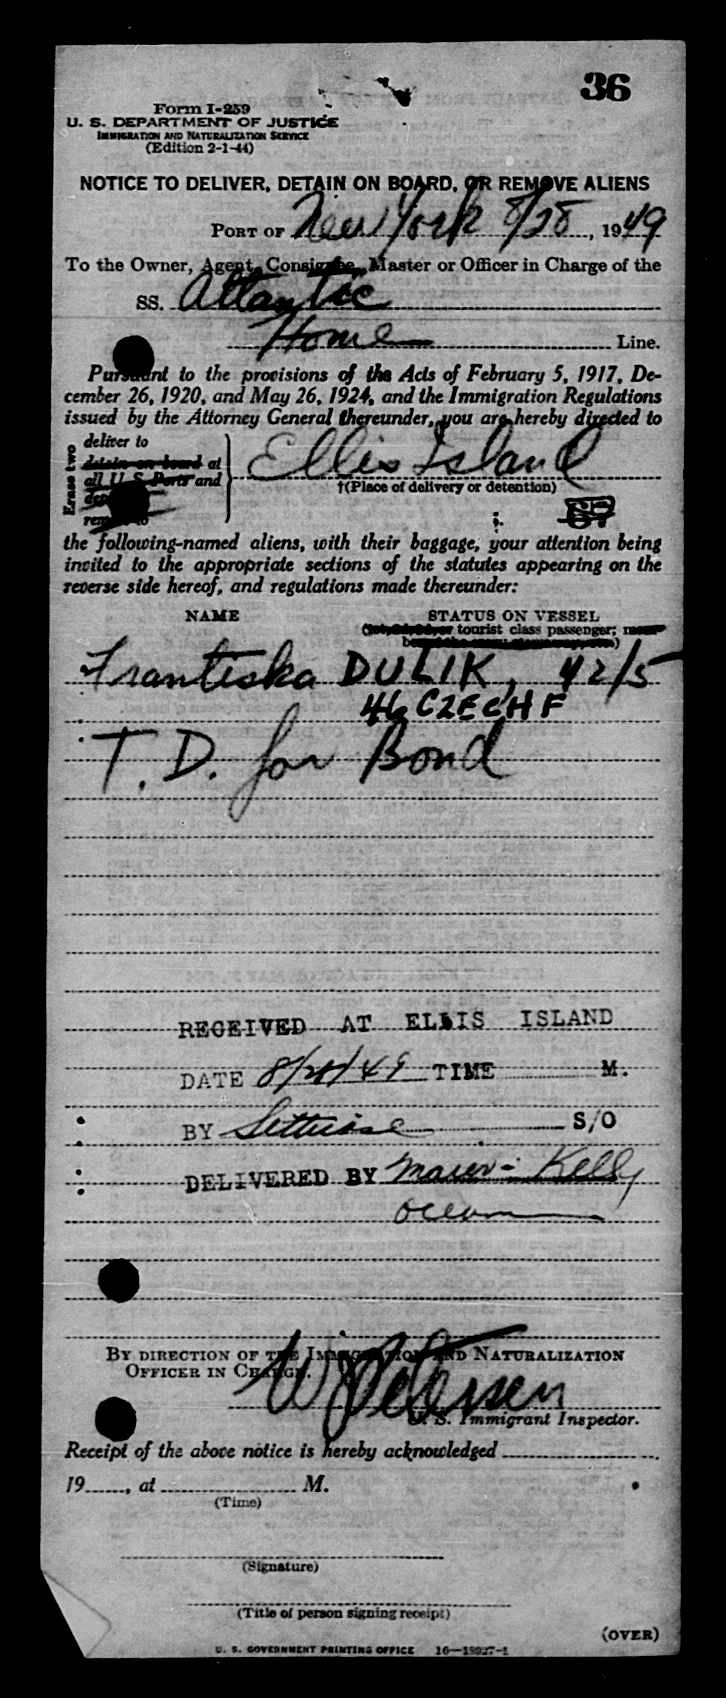 36
Form I-259
U. S. DEPARTMENT OF JUSTICE
IMMIGRATION AND NATURALIZATION SERVICE
(Edition 2-1-44)
NOTICE TO DELIVER, DETAIN ON BOARD, OR REMOVE ALIENS
PORT OF New York 8/28, 1949
To the Owner, Agent, Consignee, Master or Officer in Charge of the
SS. Atlantic
Home Line.
Pursuant to the provisions of the Acts of February 5, 1917, De-
cember 26, 1920, and May 26, 1924, and the Immigration Regulations
issued by the Attorney General thereunder, you are hereby directed to
Erase two
deliver to
detain on board at
all U S Ports and
remove to
Ellis Island
†(Place of delivery or detention)
the following-named aliens, with their baggage, your attention being
invited to the appropriate sections of the statutes appearing on the
reverse side hereof, and regulations made thereunder:
NAME STATUS ON VESSEL
tourist class passenger;
Frantiska DULIK, 42/5
46 CZECH F
T.D. for Bond
RECEIVED AT ELLIS ISLAND
DATE TIME M.
BY S/O
DELIVERED BY Maier - Kelly
Ocean
BY DIRECTION OF THE IMMIGRATION AND NATURALIZATION
OFFICER IN CHARGE.
W Petersen
U. S. Immigrant Inspector.
Receipt of the above notice is hereby acknowledged
19, at M.
(Time)
(Signature)
(Title of person signing receipt)
(OVER)
U. S. GOVERNMENT PRINTING OFFICE 16—18927-1